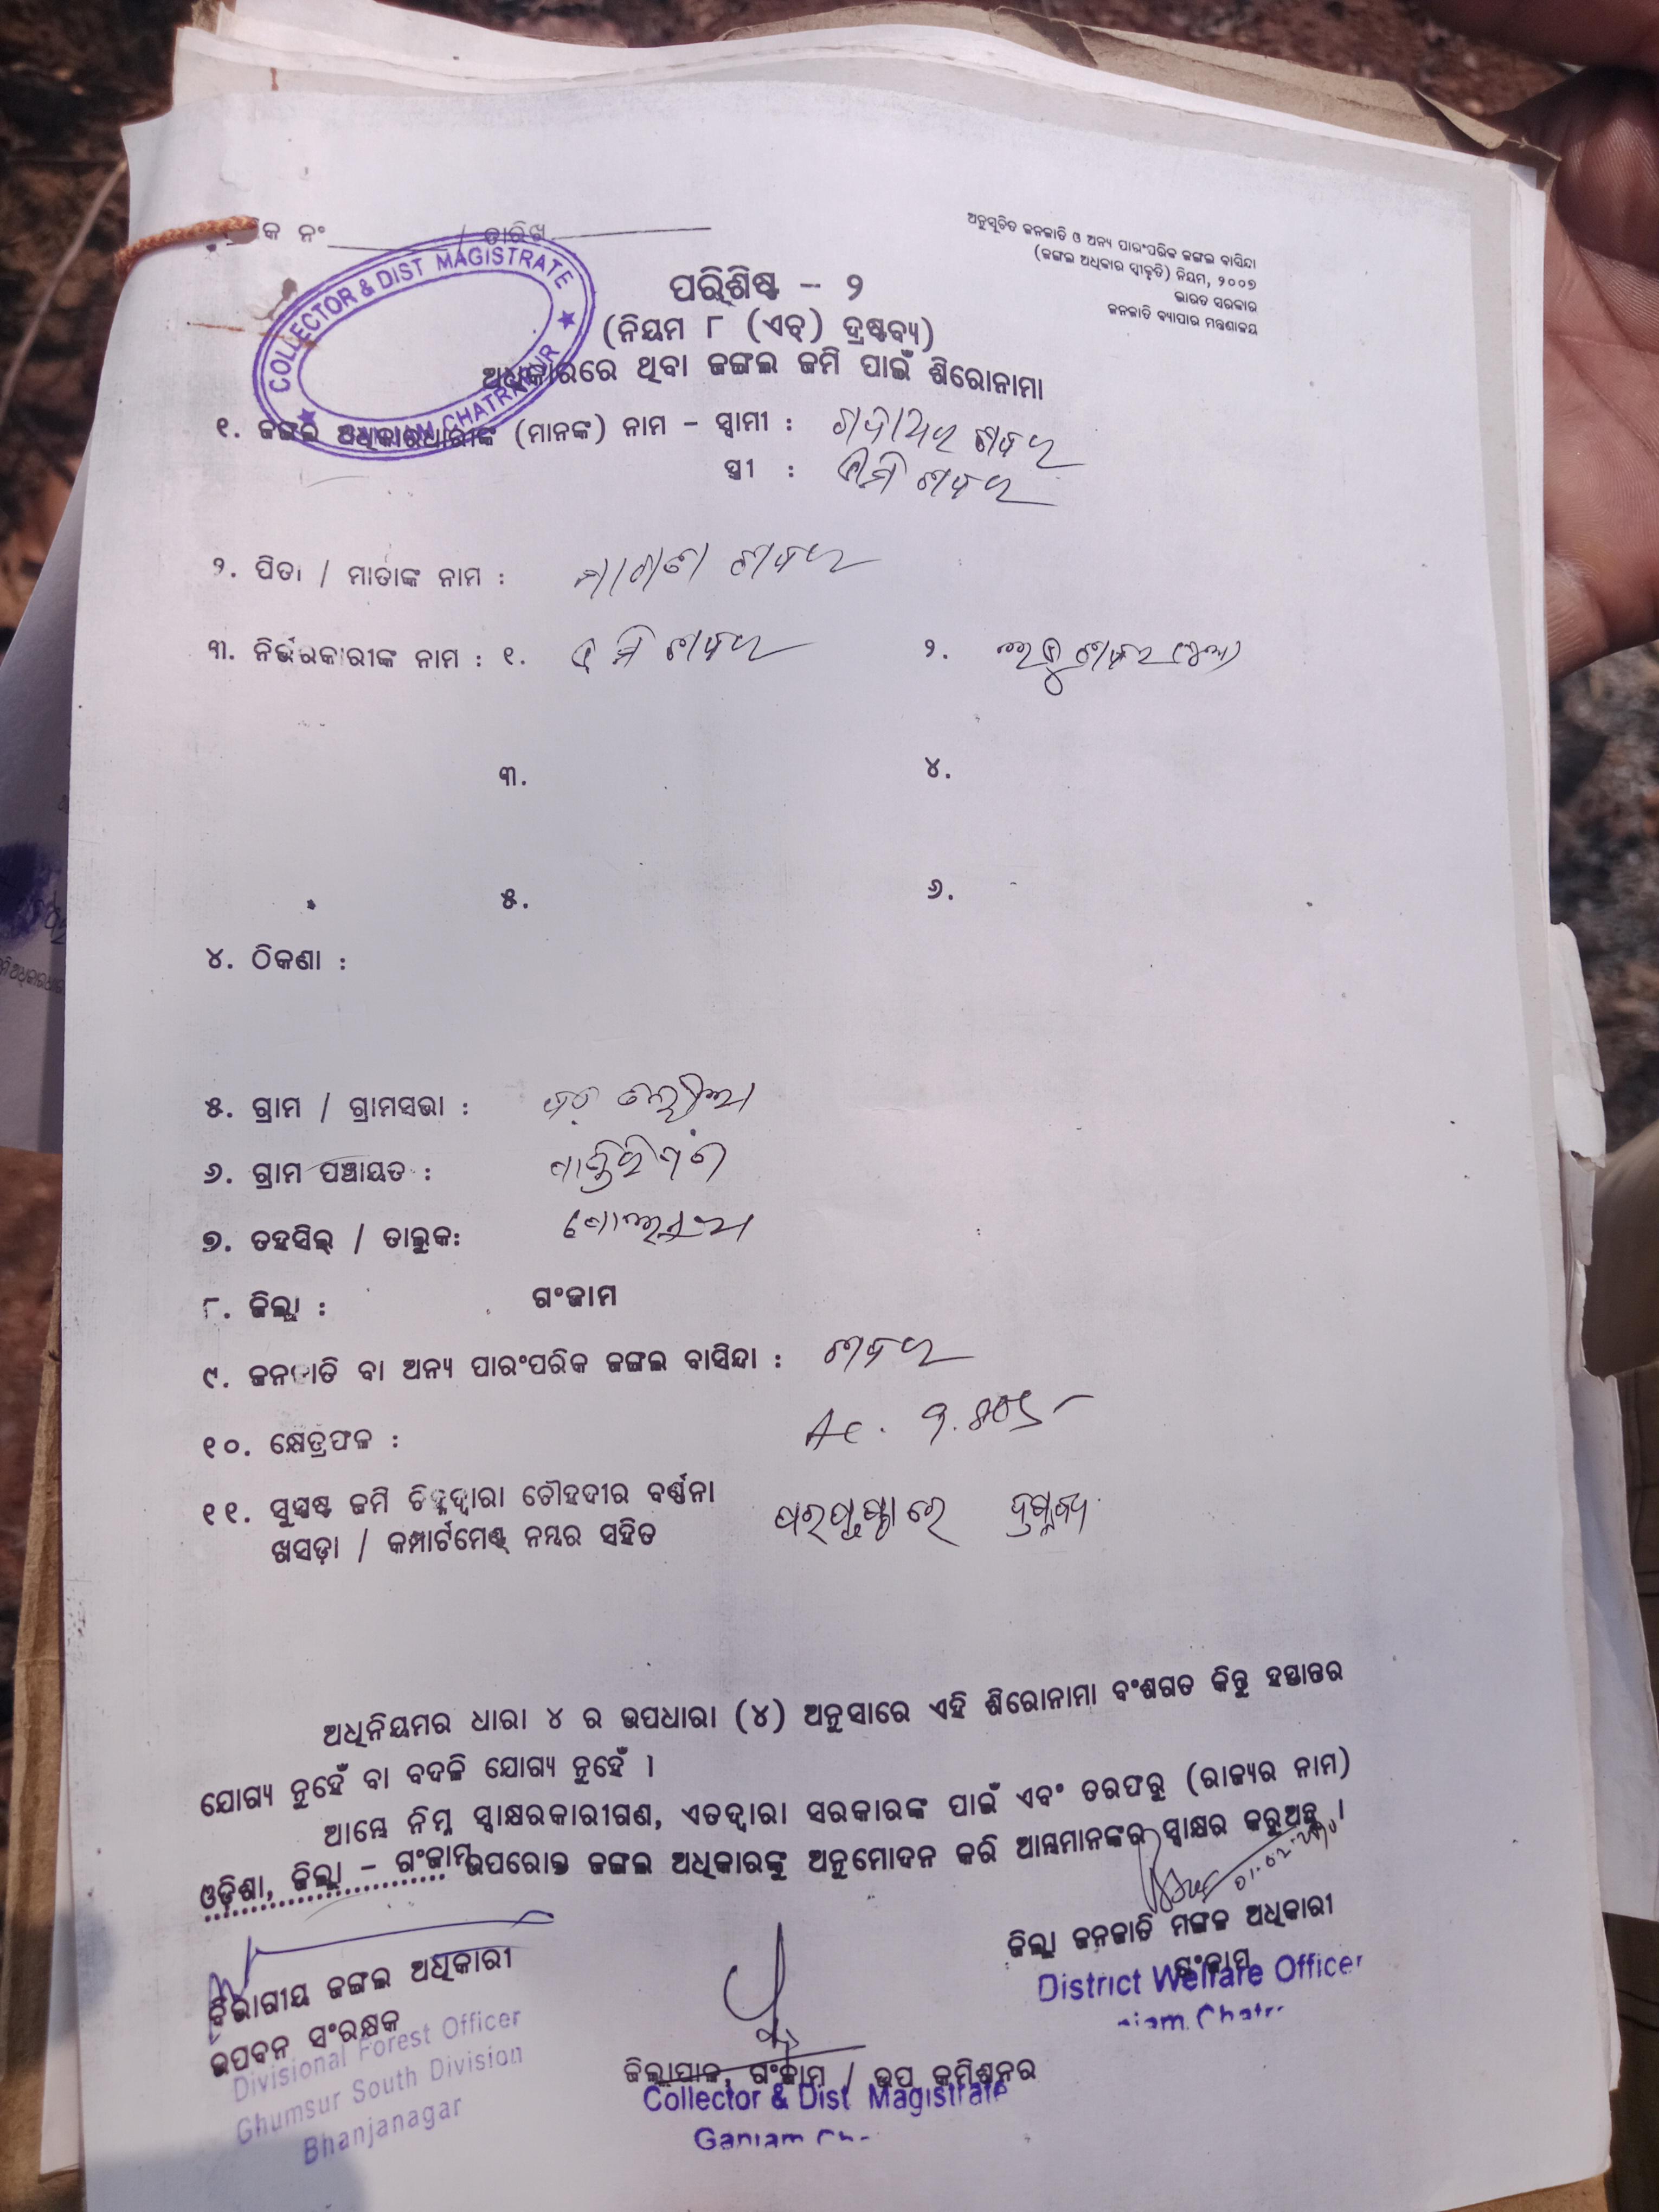 କ ନଂ ________ / ତାରିଖ ________
ଅନୁସୂଚିତ ଜନଜାତି ଓ ଅନ୍ୟ ପାରଂପରିକ ଜଙ୍ଗଲ ବାସିନ୍ଦା
(ଜଙ୍ଗଲ ଅଧିକାର ସ୍ୱୀକୃତି) ନିୟମ, ୨୦୦୭
ଭାରତ ସରକାର
ଜନଜାତି ବ୍ୟାପାର ମନ୍ତ୍ରଣାଳୟ
COLLECTOR & DIST MAGISTRATE
CHATRAPUR
ପରିଶିଷ୍ଟ - ୨
(ନିୟମ ୮ (ଏଚ୍) ଦ୍ରଷ୍ଟବ୍ୟ)
ଅଧିକାରରେ ଥିବା ଜଙ୍ଗଲ ଜମି ପାଇଁ ଶିରୋନାମା
୧. ଜଙ୍ଗଲ ଅଧିକାରଧାରୀଙ୍କ (ମାନଙ୍କ) ନାମ - ସ୍ୱାମୀ : ଶବର
ସ୍ତ୍ରୀ : ଶବର
୨. ପିତା / ମାତାଙ୍କ ନାମ : ଶବର
୩. ନିର୍ଭରକାରୀଙ୍କ ନାମ : ୧. ଶବର ୨. ଶବର
୩. ୪.
୫. ୬.
୪. ଠିକଣା :
୫. ଗ୍ରାମ / ଗ୍ରାମସଭା :
୬. ଗ୍ରାମ ପଞ୍ଚାୟତ :
୭. ତହସିଲ୍ / ତାଲୁକ:
୮. ଜିଲ୍ଲା : ଗଂଜାମ
୯. ଜନଜାତି ବା ଅନ୍ୟ ପାରଂପରିକ ଜଙ୍ଗଲ ବାସିନ୍ଦା : ଶବର
୧୦. କ୍ଷେତ୍ରଫଳ : Ac.
୧୧. ସୁସ୍ପଷ୍ଟ ଜମି ଚିହ୍ନଦ୍ୱାରା ଚୌହଦୀର ବର୍ଣ୍ଣନା
ଖସଡ଼ା / କମ୍ପାର୍ଟମେଣ୍ଟ୍ ନମ୍ବର ସହିତ ପରପୃଷ୍ଠାରେ ଦ୍ରଷ୍ଟବ୍ୟ
ଅଧିନିୟମର ଧାରା ୪ ର ଉପଧାରା (୪) ଅନୁସାରେ ଏହି ଶିରୋନାମା ବଂଶଗତ କିନ୍ତୁ ହସ୍ତାନ୍ତର
ଯୋଗ୍ୟ ନୁହେଁ ବା ବଦଳି ଯୋଗ୍ୟ ନୁହେଁ ।
ଆମ୍ଭେ ନିମ୍ନ ସ୍ୱାକ୍ଷରକାରୀଗଣ, ଏତଦ୍ୱାରା ସରକାରଙ୍କ ପାଇଁ ଏବଂ ତରଫରୁ (ରାଜ୍ୟର ନାମ)
ଓଡ଼ିଶା, ଜିଲ୍ଲା - ଗଂଜାମ ଉପରୋକ୍ତ ଜଙ୍ଗଲ ଅଧିକାରଙ୍କୁ ଅନୁମୋଦନ କରି ଆମ୍ଭମାନଙ୍କର ସ୍ୱାକ୍ଷର କରୁଅଛୁ ।
ଜିଲ୍ଲା ଜନଜାତି ମଙ୍ଗଳ ଅଧିକାରୀ
ଗଂଜାମ
District Welfare Officer
ବିଭାଗୀୟ ଜଙ୍ଗଲ ଅଧିକାରୀ
ଉପବନ ସଂରକ୍ଷକ
Divisional Forest Officer
Ghumsur South Division
Bhanjanagar
ଜିଲ୍ଲାପାଳ, ଗଂଜାମ / ଉପ କମିଶନର
Collector & Dist Magistrate
Ganjam